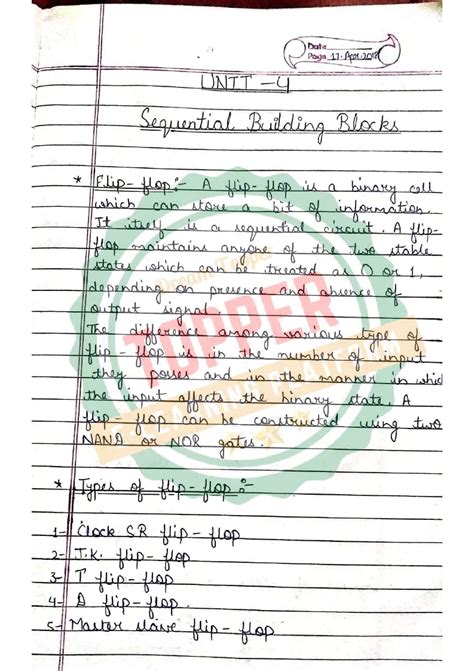 Date
Page 17.Apr.2018
UNIT - 4
Sequential Building Blocks
* Flip-flop:- A flip-flop is a binary cell
which can store a bit of information.
It itself is a sequential circuit. A flip-
flop maintains anyone of the two stable
states which can be treated as 0 or 1,
depending on presence and absence of
output signal
The difference among various type of
flip-flop is in the number of input
they posses and in the manner in which
the input affects the binary state. A
flip-flop can be constructed using two
NAND or NOR gates.
* Types of flip-flop:-
1- Clock SR flip-flop
2- J.K. flip-flop
3- T flip-flop
4- D flip-flop.
5- Master slave flip-flop
TOPPER